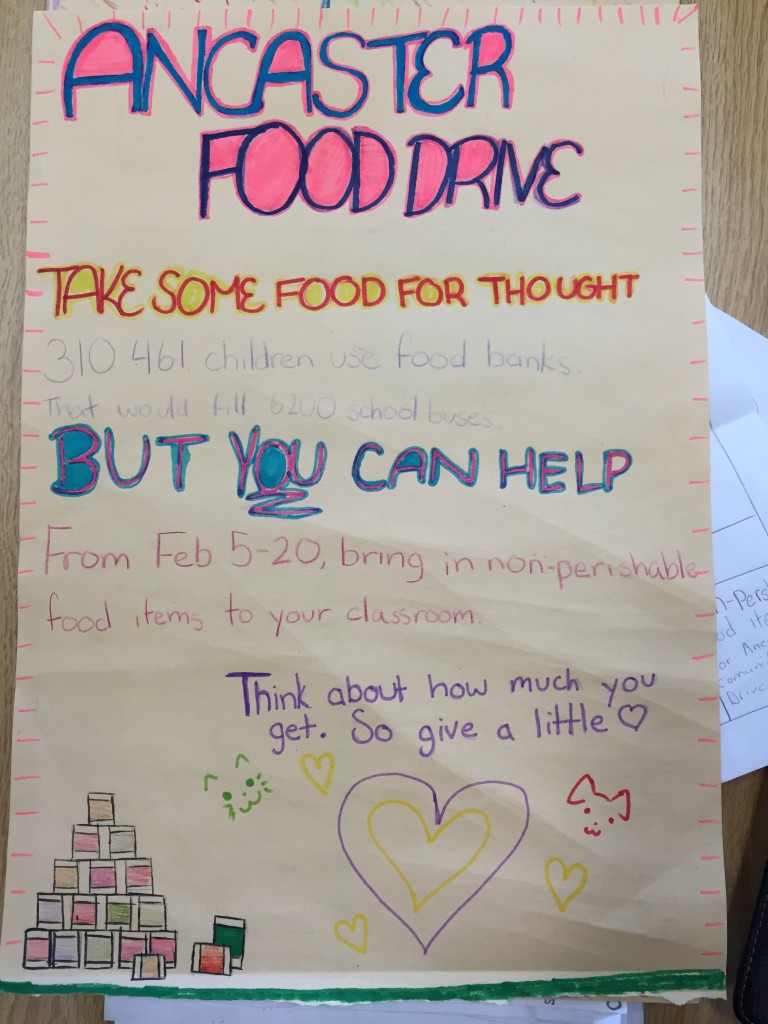 ANCASTER
FOOD DRIVE
TAKE SOME FOOD FOR THOUGHT
310 461 children use food banks.
That would fill 6200 school buses.
BUT YOU CAN HELP
From Feb 5-20, bring in non-perishable
food items to your classroom.
Think about how much you
get. So give a little